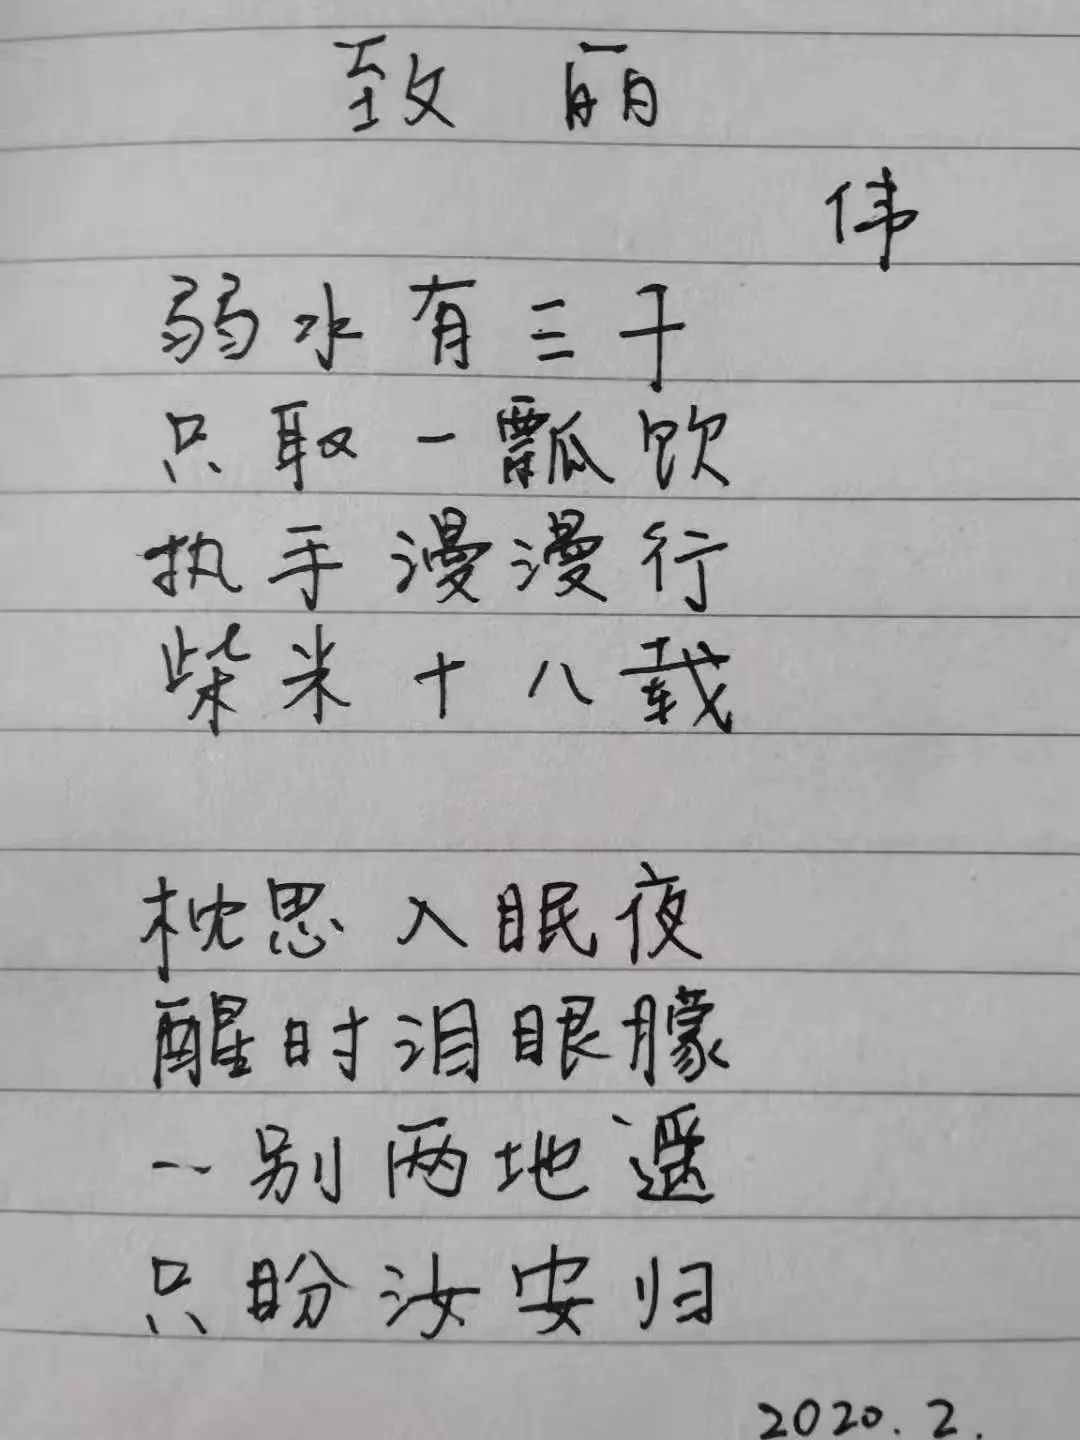 致丽
伟
弱水有三千
只取一瓢饮
执手漫漫行
柴米十八载
枕思入眠夜
醒时泪眼朦
一别两地遥
只盼汝安归
2020.2.